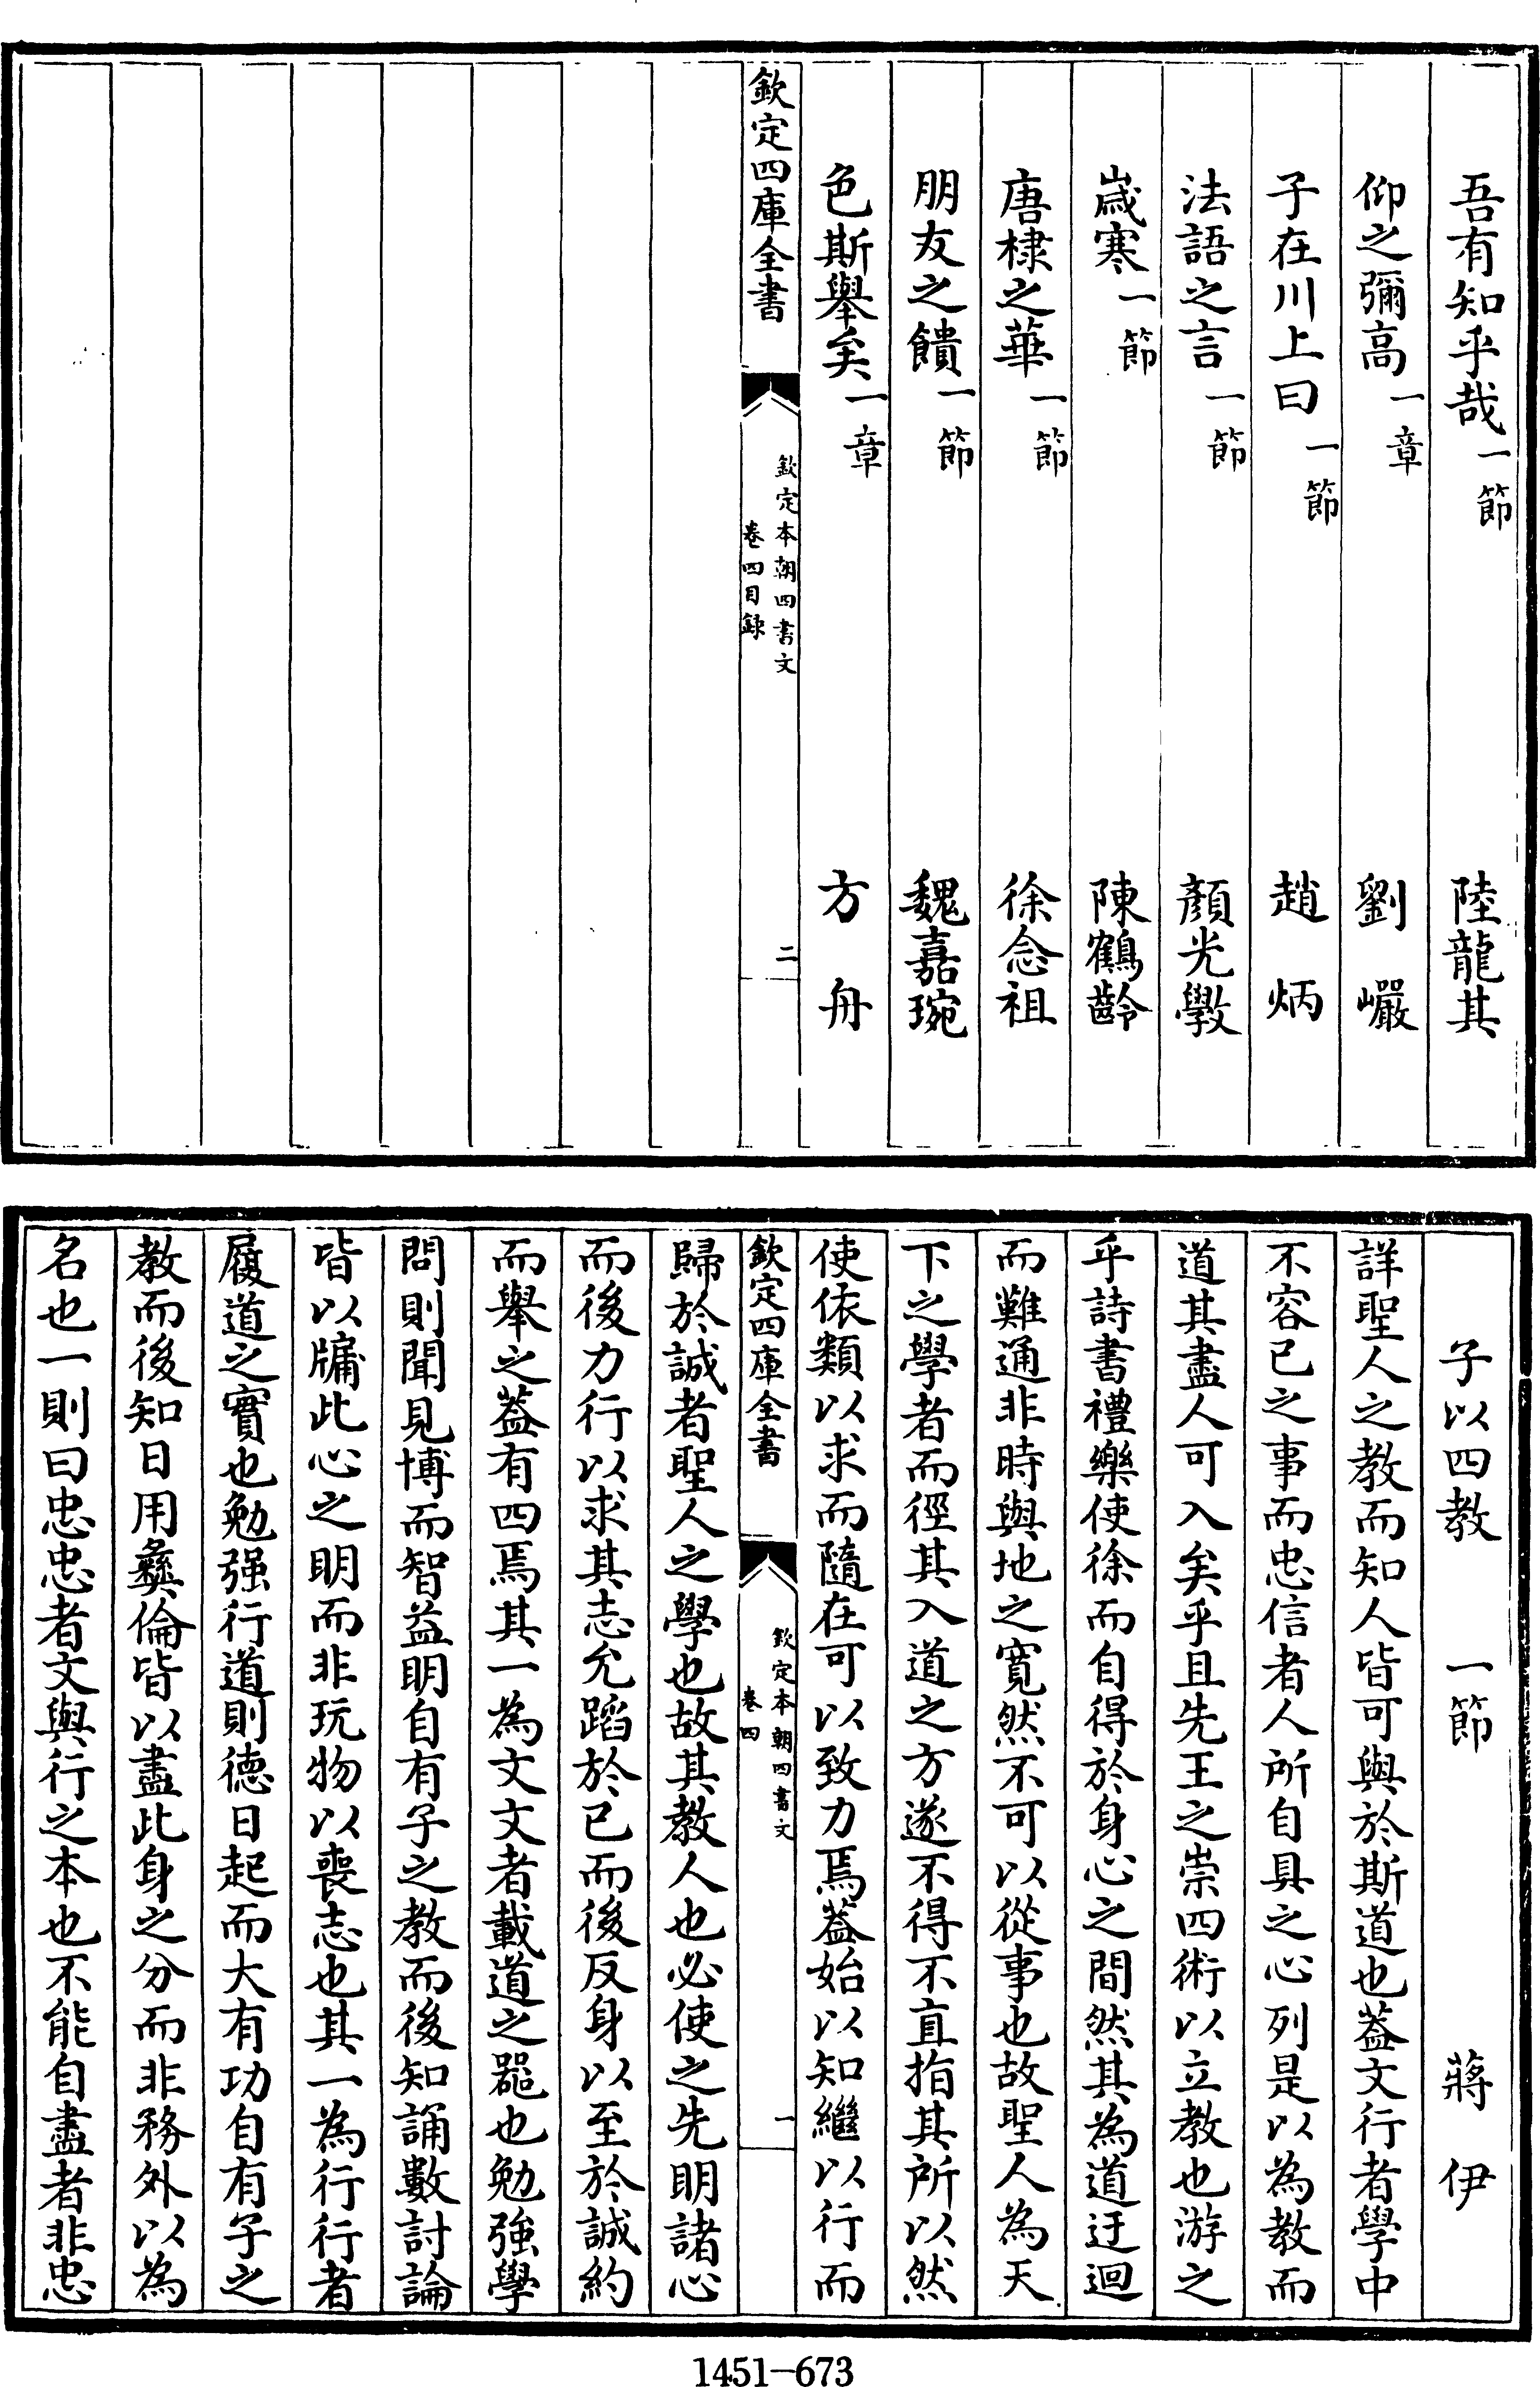 吾有知乎哉一節　陸龍其
仰之彌高一章　劉巗
子在川上曰一節　趙炳
法語之言一節　顏光斆
歲寒一節　陳鶴齡
唐棣之華一節　徐念祖
朋友之饋一節　魏嘉琬
色斯舉矣一章　方舟
欽定四庫全書
欽定本朝四書文
卷四目錄
二
子以四教　一節　蔣伊
詳聖人之教而知人皆可與於斯道也葢文行者學中
不容已之事而忠信者人所自具之心列是以為教而
道其盡人可入矣乎且先王之崇四術以立教也游之
乎詩書禮樂使徐而自得於身心之間然其為道迂迴
而難通非時與地之寛然不可以從事也故聖人為天
下之學者而徑其入道之方遂不得不直指其所以然
使依類以求而隨在可以致力焉葢始以知繼以行而
欽定四庫全書
欽定本朝四書文
卷四
一
歸於誠者聖人之學也故其教人也必使之先明諸心
而後力行以求其志允蹈於已而後反身以至於誠約
而舉之葢有四焉其一為文文者載道之器也勉強學
問則聞見博而智益明自有子之教而後知誦數討論
皆以牖此心之明而非玩物以喪志也其一為行行者
履道之實也勉强行道則德日起而大有功自有子之
教而後知日用彝倫皆以盡此身之分而非務外以為
名也一則曰忠忠者文與行之本也不能自盡者非忠
1451-673